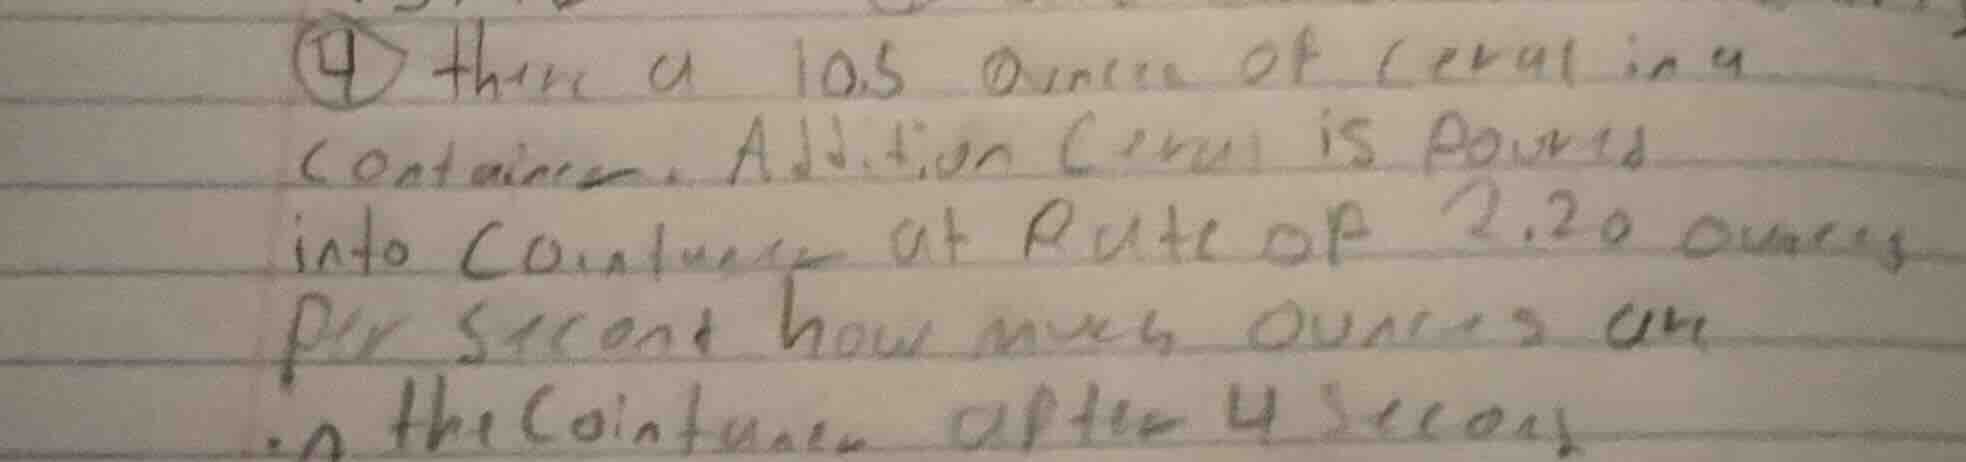 ④ there a 10.5 ounces of cerul in a
container. Addition Cerul is poured
into Cointuner at Rate of 2.20 ounces
per second how much ounces are
in the Cointuner after 4 second